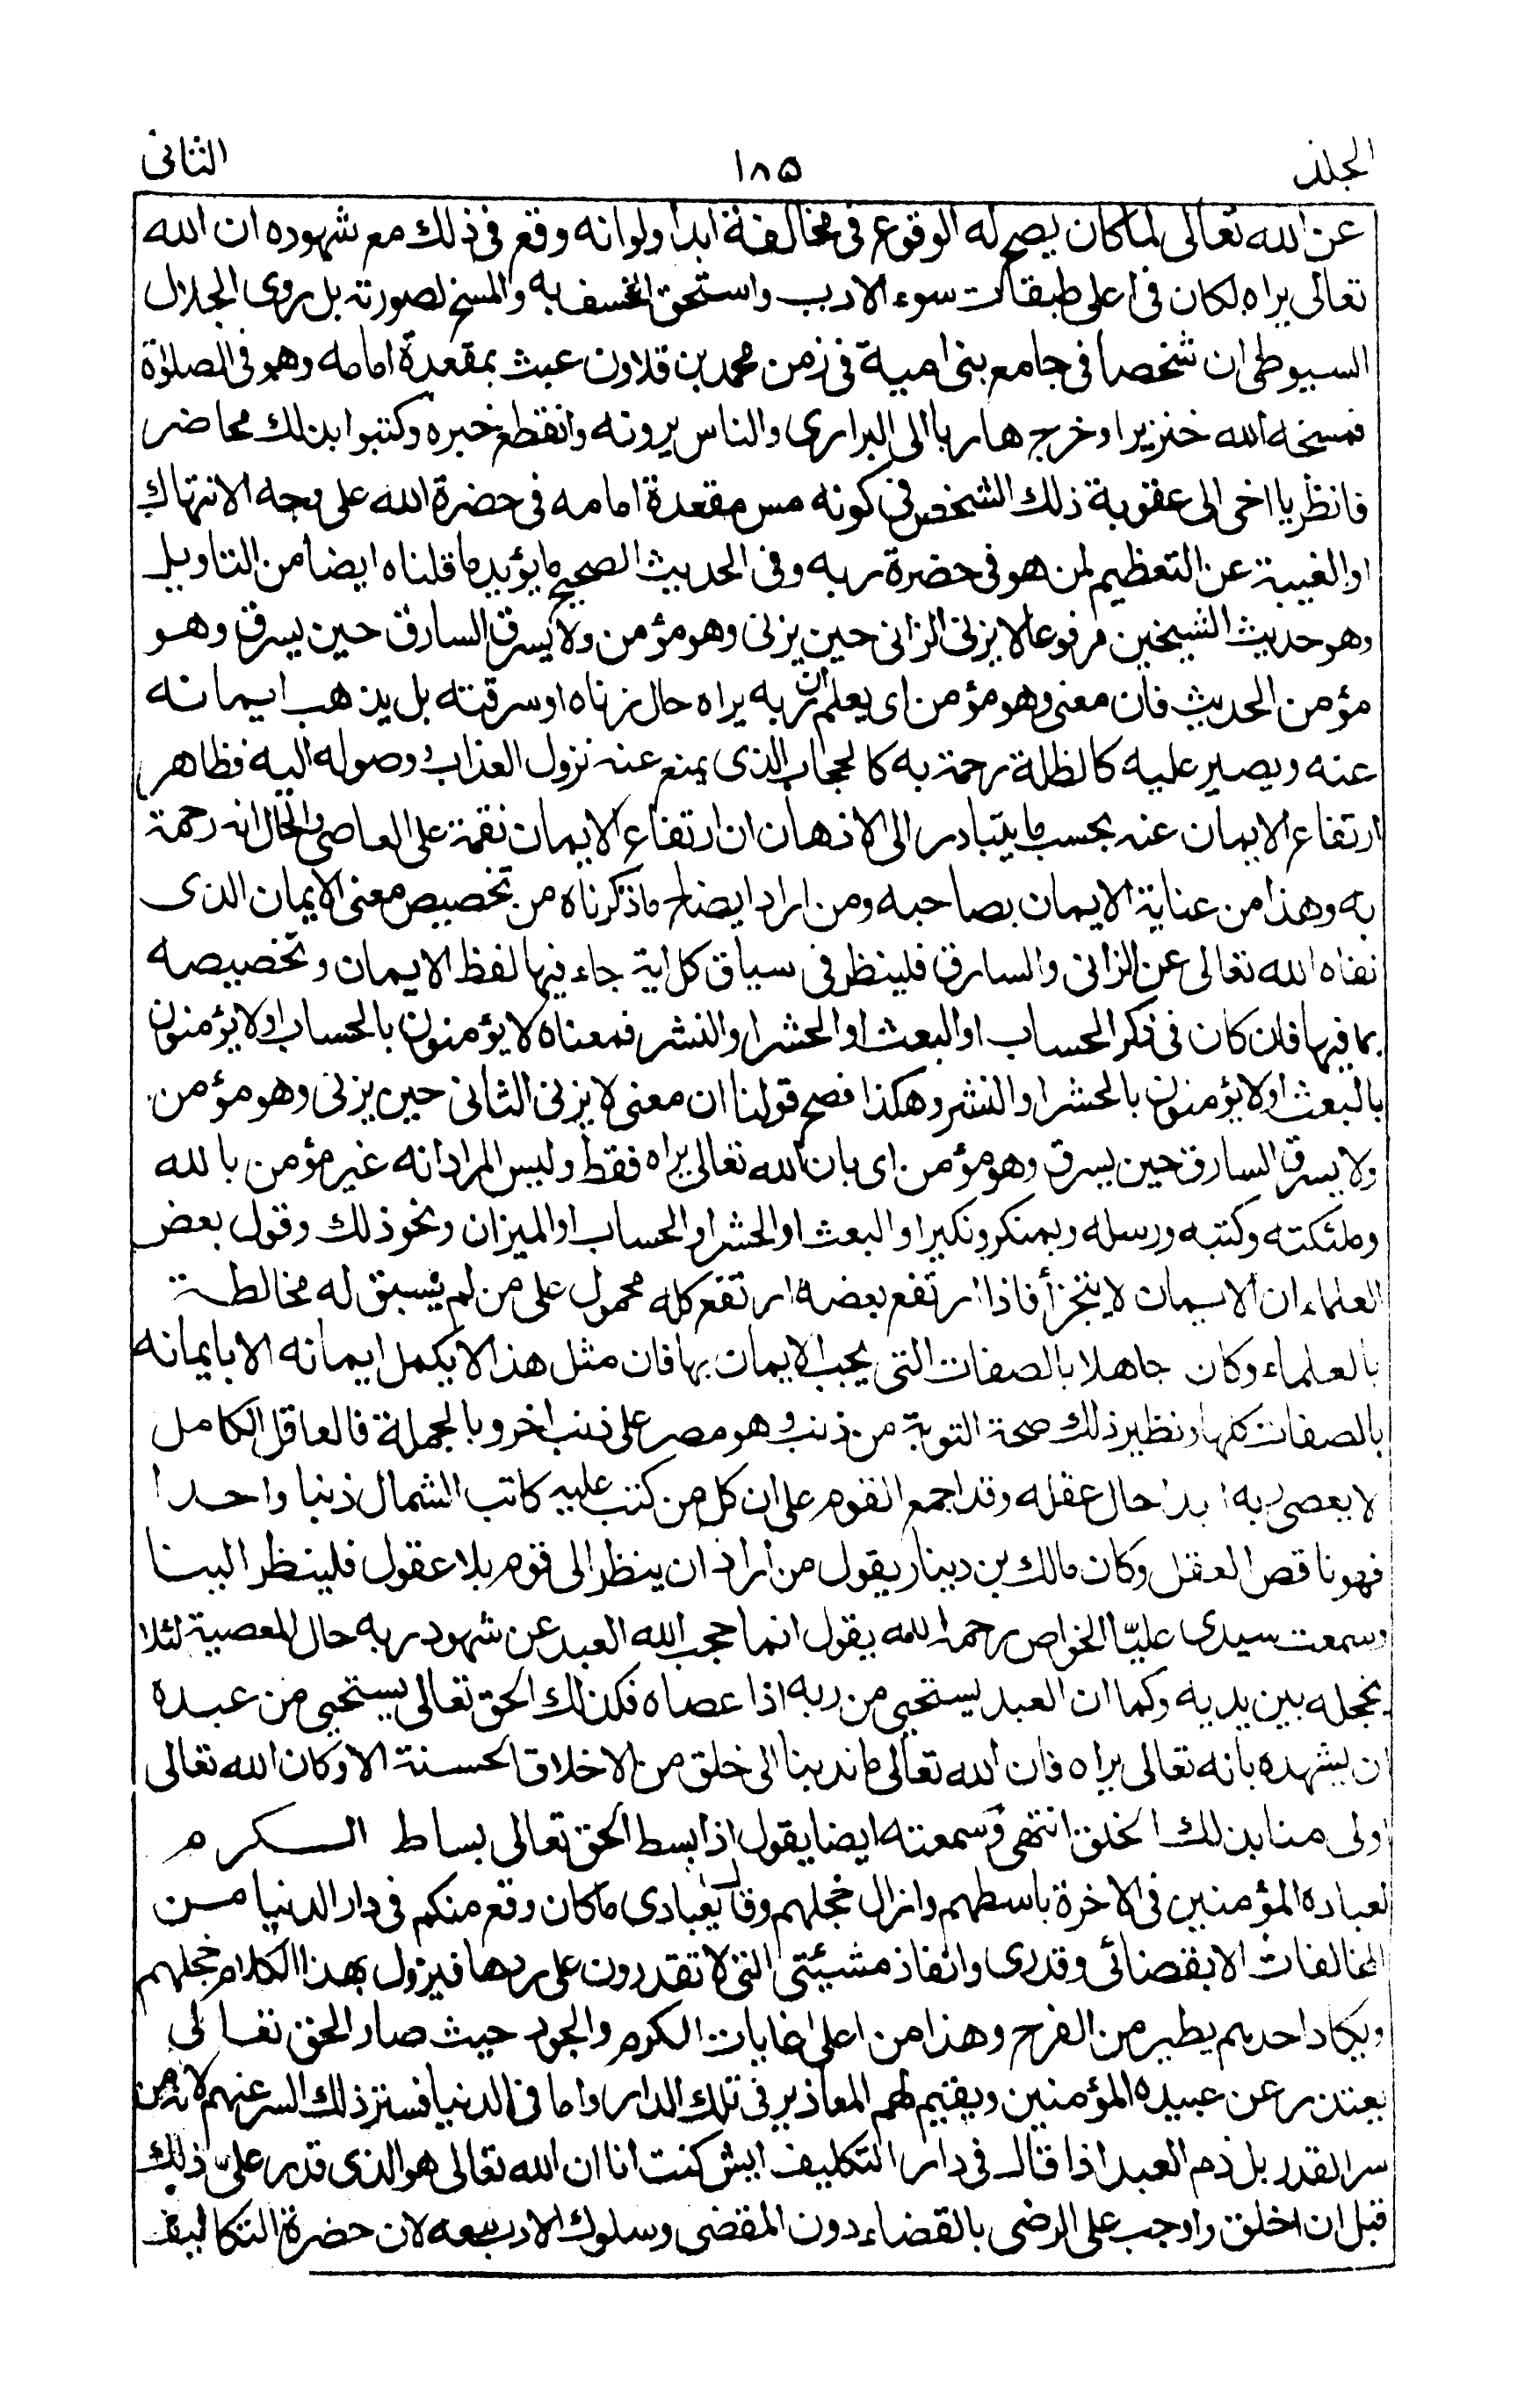 الجلد ١٨٥ الثانى
عن الله تعالى لما كان يصح له الوقوع فى مخالفة ابدا ولو انه وقع فى ذلك مع شهوده ان الله
تعالى يراه لكان فى اعلى طبقات سوء الادب واستحق الخسف به والمسخ لصورته بل روى الجلال
السيوطى ان شخصا فى جامع بنى امية فى زمن محمد بن قلاون عبث بمقعدة امامه وهو فى الصلوٰة
فمسخه الله خنزيرا وخرج هاربا الى البرارى والناس يرونه وانقطع خبره وكتبوا بذلك محاضر
فانظر يا اخى الى عقوبة ذلك الشخص فى كونه مس مقعدة امامه فى حضرة الله على وجه الانتهاك
او الغيبة عن التعظيم لمن هو فى حضرة ربه وفى الحديث الصحيح ما يؤيد ما قلناه ايضا من التاويل
وهو حديث الشيخين مرفوعا لا يزنى الزانى حين يزنى وهو مؤمن ولا يسرق السارق حين يسرق وهو
مؤمن الحديث فان معنى وهو مؤمن اى يعلم ان ربه يراه حال زناه او سرقته بل يذهب ايمانه
عنه ويصير عليه كالظلة رحمة به كالحجاب الذى يمنع عنه نزول العذاب وصوله اليه فظاهر
ارتفاع الايمان عنه بحسب ما يتبادر الى الاذهان ان ارتفاع الايمان نقمة على العاصى والحال انه رحمة
به وهذا من عناية الايمان بصاحبه ومن اراد ايضاح ما ذكرناه من تخصيص معنى الايمان الذى
نفاه الله تعالى عن الزانى والسارق فلينظر فى سياق كل اية جاء فيها لفظ الايمان وتخصيصه
بما فيها فان كان فى ذكر الحساب او البعث او الحشر او النشر فمعناه لا يؤمنون بالحساب او لا يؤمنون
بالبعث او لا يؤمنون بالحشر او النشر وهكذا فصح قولنا ان معنى لا يزنى الثانى حين يزنى وهو مؤمن
ولا يسرق السارق حين يسرق وهو مؤمن اى بان الله تعالى يراه فقط وليس المراد انه غير مؤمن بالله
وملئكته وكتبه ورسله وبمنكر ونكير او البعث او الحشر او الحساب او الميزان ونحو ذلك وقول بعض
العلماء ان الايمان لا يتجزأ فاذا ارتفع بعضه ارتفع كله محمول على من لم يسبق له مخالطة
بالعلماء وكان جاهلا بالصفات التى يجب الايمان بها فان مثل هذا لا يكمل ايمانه الا بايمانه
بالصفات كلها ونظير ذلك صحة التوبة من ذنب وهو مصر على ذنب اخر وبالجملة فالعاقل الكامل
لا يعصى ربه ابدا حال عقله وقد اجمع القوم على ان كل من كتب عليه كاتب الشمال ذنبا واحدا
فهو ناقص العقل وكان مالك بن دينار يقول من اراد ان ينظر الى قوم بلا عقول فلينظر الينا
وسمعت سيدى عليّا الخواص رحمه الله يقول انما حجب الله العبد عن شهود ربه حال المعصية لئلا
يخجله بين يديه وكما ان العبد يستحيى من ربه اذا عصاه فكذلك الحق تعالى يستحيى من عبده
ان يشهده بانه تعالى يراه فان الله تعالى ما ندبنا الى خلق من الاخلاق الحسنة الا وكان الله تعالى
اولى منا بذلك الخلق انتهى وسمعته ايضا يقول اذا بسط الحق تعالى بساط الكرم
لعباده المؤمنين فى الاخرة باسطهم وازال خجلهم وقال يا عبادى ما كان وقع منكم فى دار الدنيا من
المخالفات الا بقضائى وقدرى وانفاذ مشيئتى التى لا تقدرون على ردها فيزول بهذا الكلام خجلهم
ويكاد احدهم يطير من الفرح وهذا من اعلى غايات الكرم والجود حيث صار الحق تعالى
يعتذر عن عبيده المؤمنين ويقيم لهم المعاذير فى تلك الدار واما فى الدنيا فستر ذلك السر عنهم لانه من
سر القدر بل ذم العبد اذا قال فى دار التكليف ايش كنت انا ان الله تعالى هو الذى قدر علىّ ذلك
قبل ان اخلق واوجب على الرضى بالقضاء دون المقضى وسلوك الادب معه لان حضرة التكاليف